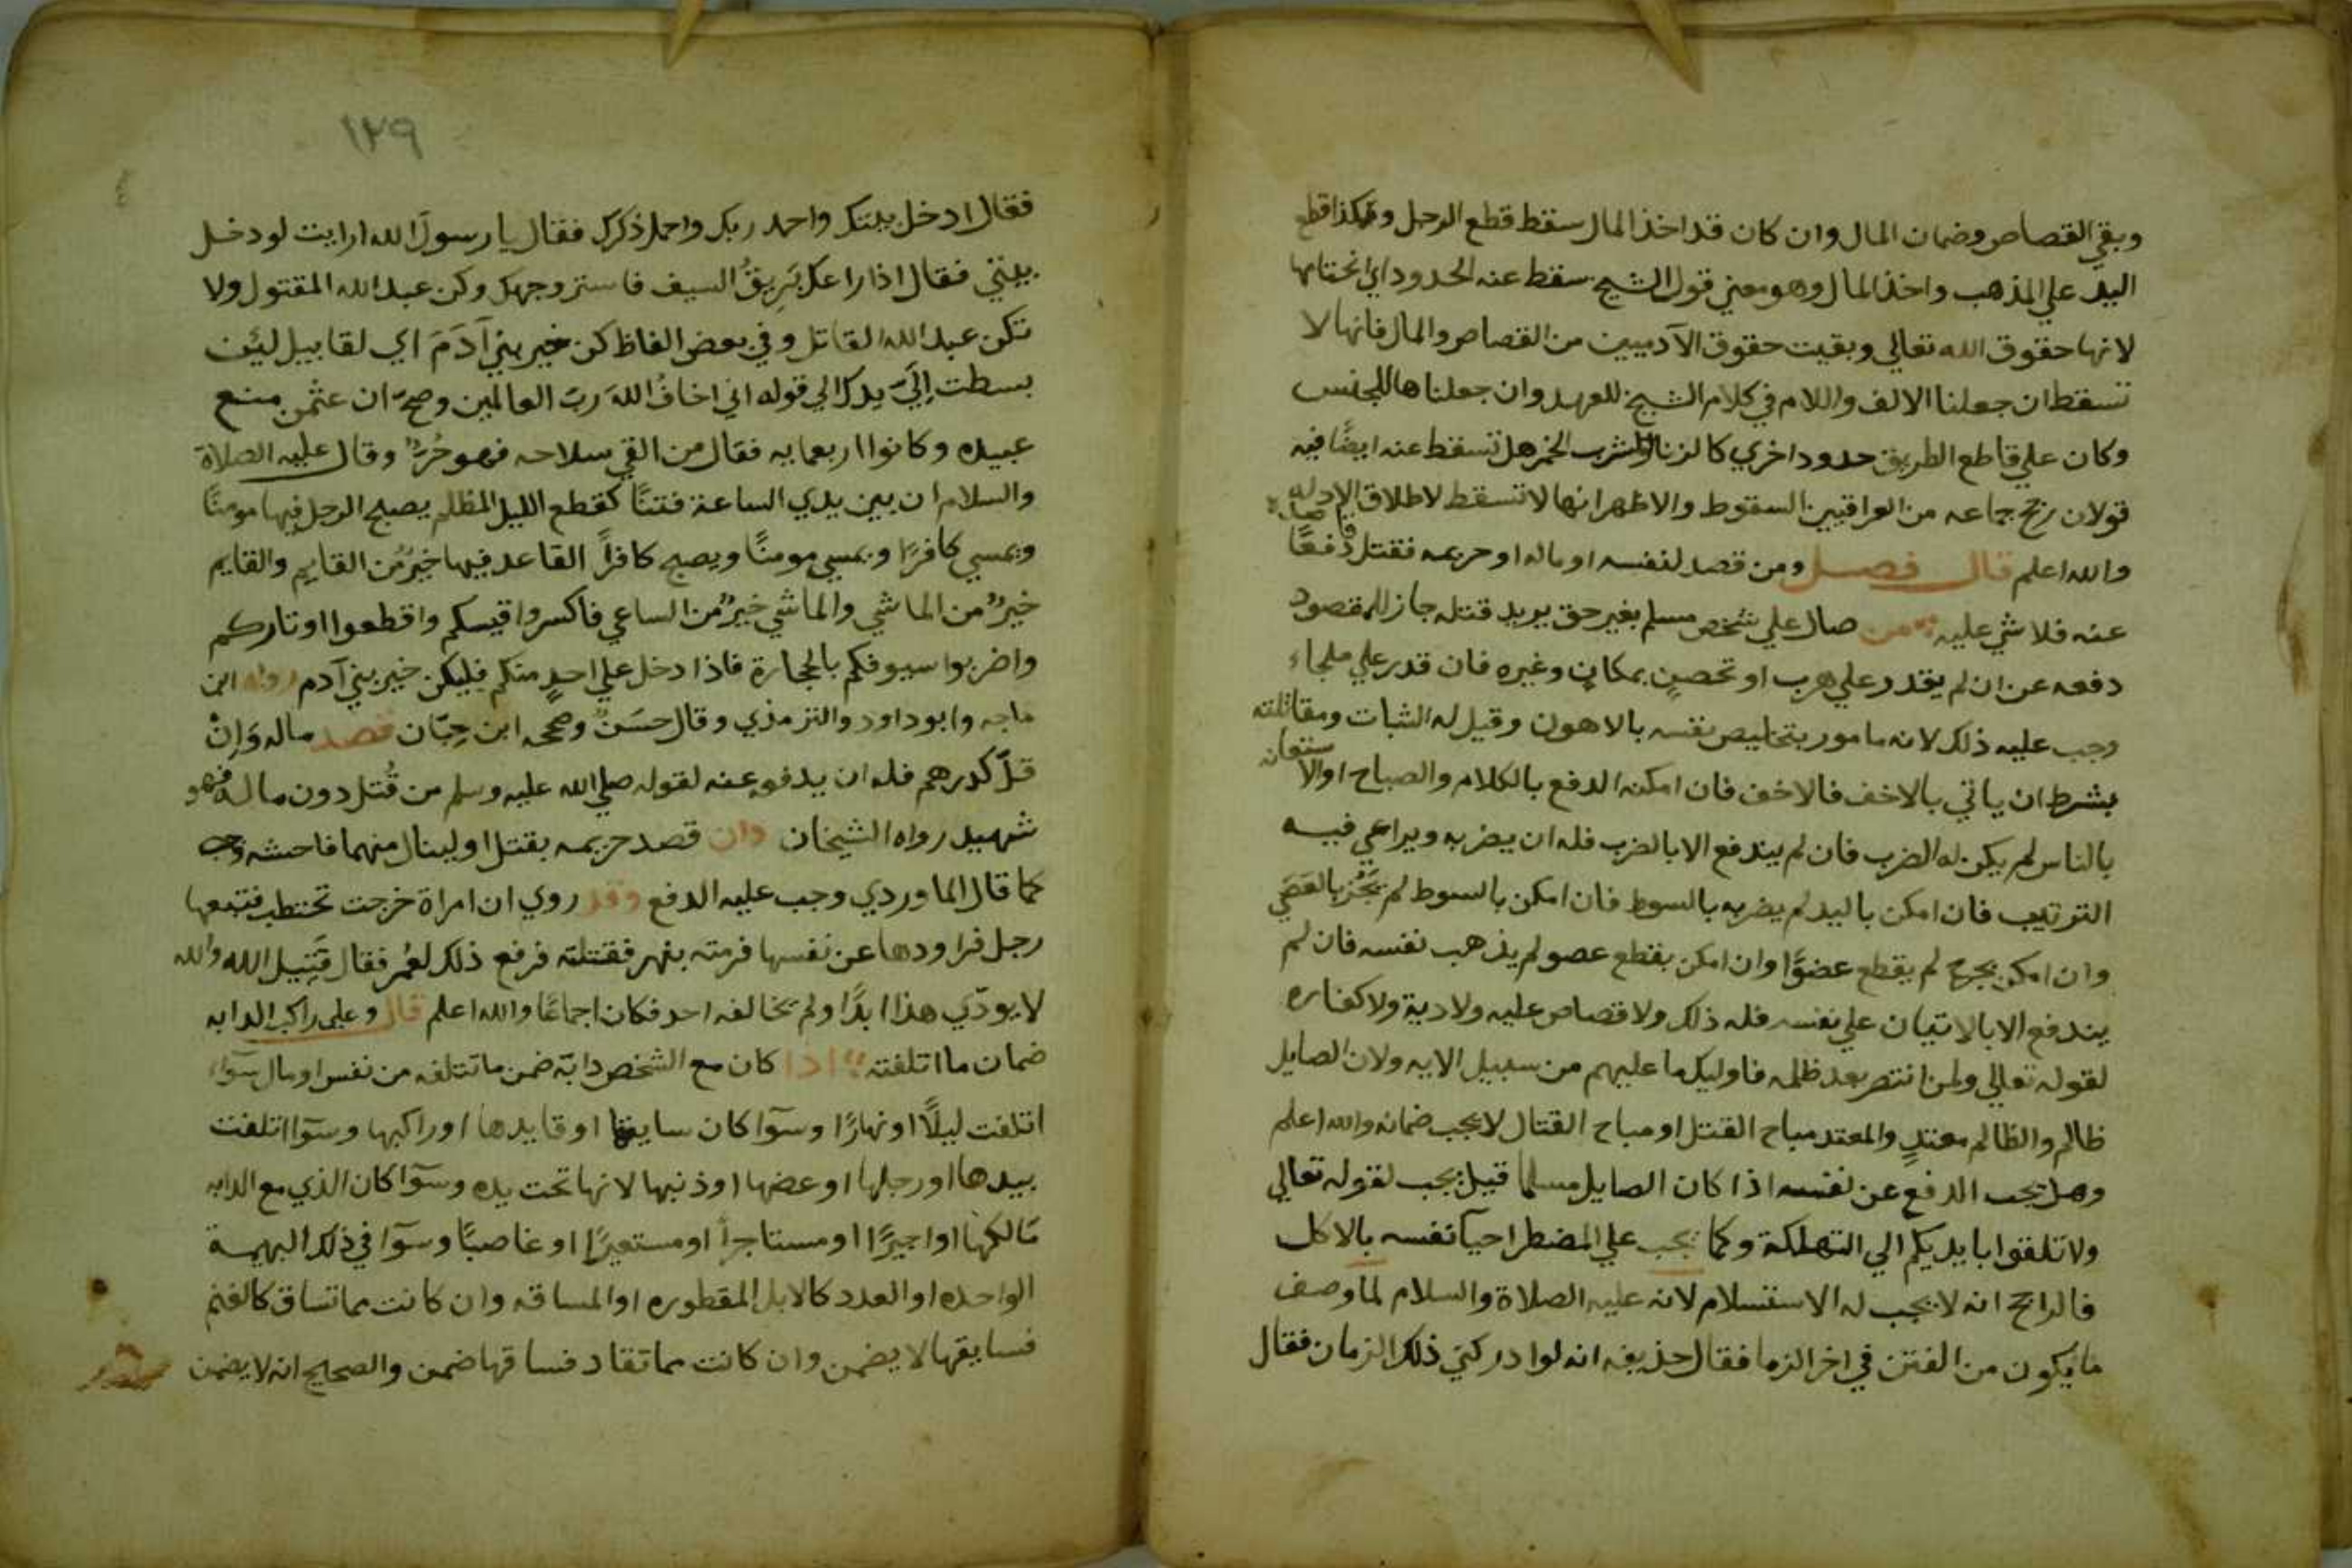 وبقي القصاص وضمان المال وان كان قد اخذ المال سقط قطع الرجل وهكذا قطع
اليد علي المذهب واخذ المال وهو معني قول الشيخ سقط عنه الحدود اي انحتامها
لانها حقوق الله تعالي وبقيت حقوق الآدميين من القصاص والمال فانها لا
تسقط ان جعلنا الالف واللام في كلام الشيخ للعهد وان جعلناها للجنس
وكان علي قاطع الطريق حدود اخري كالزنا وشرب الخمر هل تسقط عنه ايضًا فيه
قولان رجح جماعه من العراقيين السقوط والاظهر انها لا تسقط لاطلاق الادله
والله اعلم قال فصل ومن قصد لنفسه او ماله او حريمه فقتل دفعًا
عنه فلا شي عليه من صال علي شخص مسلم بغير حق يريد قتله جاز للمقصود
دفعه عن ان لم يقدر علي هرب او تحصنٍ بمكانٍ وغيره فان قدر علي ملجاء
وجب عليه ذلك لانه مامور بتخليص نفسه بالاهون وقيل له الثبات ومقاتلته
بشرط ان ياتي بالاخف فالاخف فان امكنه الدفع بالكلام والصياح او الاستغاثه
بالناس لم يكن له الضرب فان لم يندفع الا بالضرب فله ان يضربه ويراعي فيه
الترتيب فان امكن باليد لم يضربه بالسوط فان امكن بالسوط لم يَجُز بالعَصَي
وان امكن بجرح لم يقطع عضوًا وان امكن بقطع عضو لم يذهب نفسه فان لم
يندفع الا بالاتيان علي نفسه فله ذلك ولا قصاص عليه ولا دية ولا كفاره
لقوله تعالي ولمن انتصر بعد ظلمه فاوليك ما عليهم من سبيل الايه ولان الصايل
ظالم والظالم معتدٍ والمعتد مباح القتل او مباح القتال لا يجب ضمانه والله اعلم
وهل يجب الدفع عن نفسه اذا كان الصايل مسلما قيل يجب لقوله تعالي
ولا تلقوا بايديكم الي التهلكة وكما يجب علي المضطر احيآ نفسه بالاكل
فالراجح انه لا يجب له الاستسلام لانه عليه الصلاة والسلام لما وصف
ما يكون من الفتن في اخر الزما فقال حذيفه انه لو ادركني ذلك الزمان فقال
١٢٩
فقال ادخل بيتك واحمد ربك واحمل ذكرك فقال يا رسولَ الله ارايت لو دخل
بيتي فقال اذا راعك بَرِيقُ السيف فاستر وجهك وكن عبد الله المقتول ولا
تكن عبد الله القاتل وفي بعض الفاظ كن خير بني آدَمَ اي لقابيل لئن
بسطت اِلَيَّ يدك الي قوله اني اخافُ اللهَ ربَّ العالمين وصحَّ ان عثمن منع
عبيده وكانوا اربعمايه فقال من القي سلاحه فهو حُرٌّ وقال عليه الصلاة
والسلام ان بين يدي الساعة فتنًا كقطع الليل المظلم يصبح الرجل فيها مومنًا
ويمسي كافرًا ويمسي مومنًا ويصبح كافرًا القاعد فيها خيرٌ من القايم والقايم
خيرٌ من الماشي والماشي خيرٌ من الساعي فاكسروا قيسكم واقطعوا اوتاركم
واضربوا سيوفكم بالحجارة فاذا دخل علي احدٍ منكم فليكن خير بني آدم رواه ابن
ماجه وابو داود والترمذي وقال حسَنٌ وصححه ابن حِبّان قصد ماله وَاِنْ
قلّ كدرهم فله ان يدفعه عنه لقوله صلي الله عليه وسلم من قُتل دون ماله فهو
شهيد رواه الشيخان وان قصد حريمه بقتل او لينال منهما فاحشه وجب
كما قال الماوردي وجب عليه الدفع وقد روي ان امراة خرجت تحتطب فتبعها
رجل فراودها عن نفسها فرمته بفهر فقتلته فرفع ذلك لعُمر فقال قَتِيل الله والله
لا يودّي هذا ابدًا ولم يخالفه احد فكان اجماعًا والله اعلم قال وعلي راكب الدابه
ضمان ما اتلفته اذا كان مع الشخص دابّة ضمن ما تتلفه من نفس او مال سَوَاء
اتلفت ليلًا او نهارًا وسوآ كان سايقها او قايدها او راكبها وسوآ اتلفت
بيدها او رجلها او عضها او ذنبها لانها تحت يده وسوآ كان الذي مع الدابه
مالكها او اجيرًا او مستاجرًا او مستعيرًا او غاصبًا وسوآ في ذلك البهيمة
الواحده او العدد كالابل المقطوره او المساقه وان كانت مما تساق كالغنم
فسايقها لا يضمن وان كانت مما تقاد فساقها ضمن والصحيح انه لا يضمن